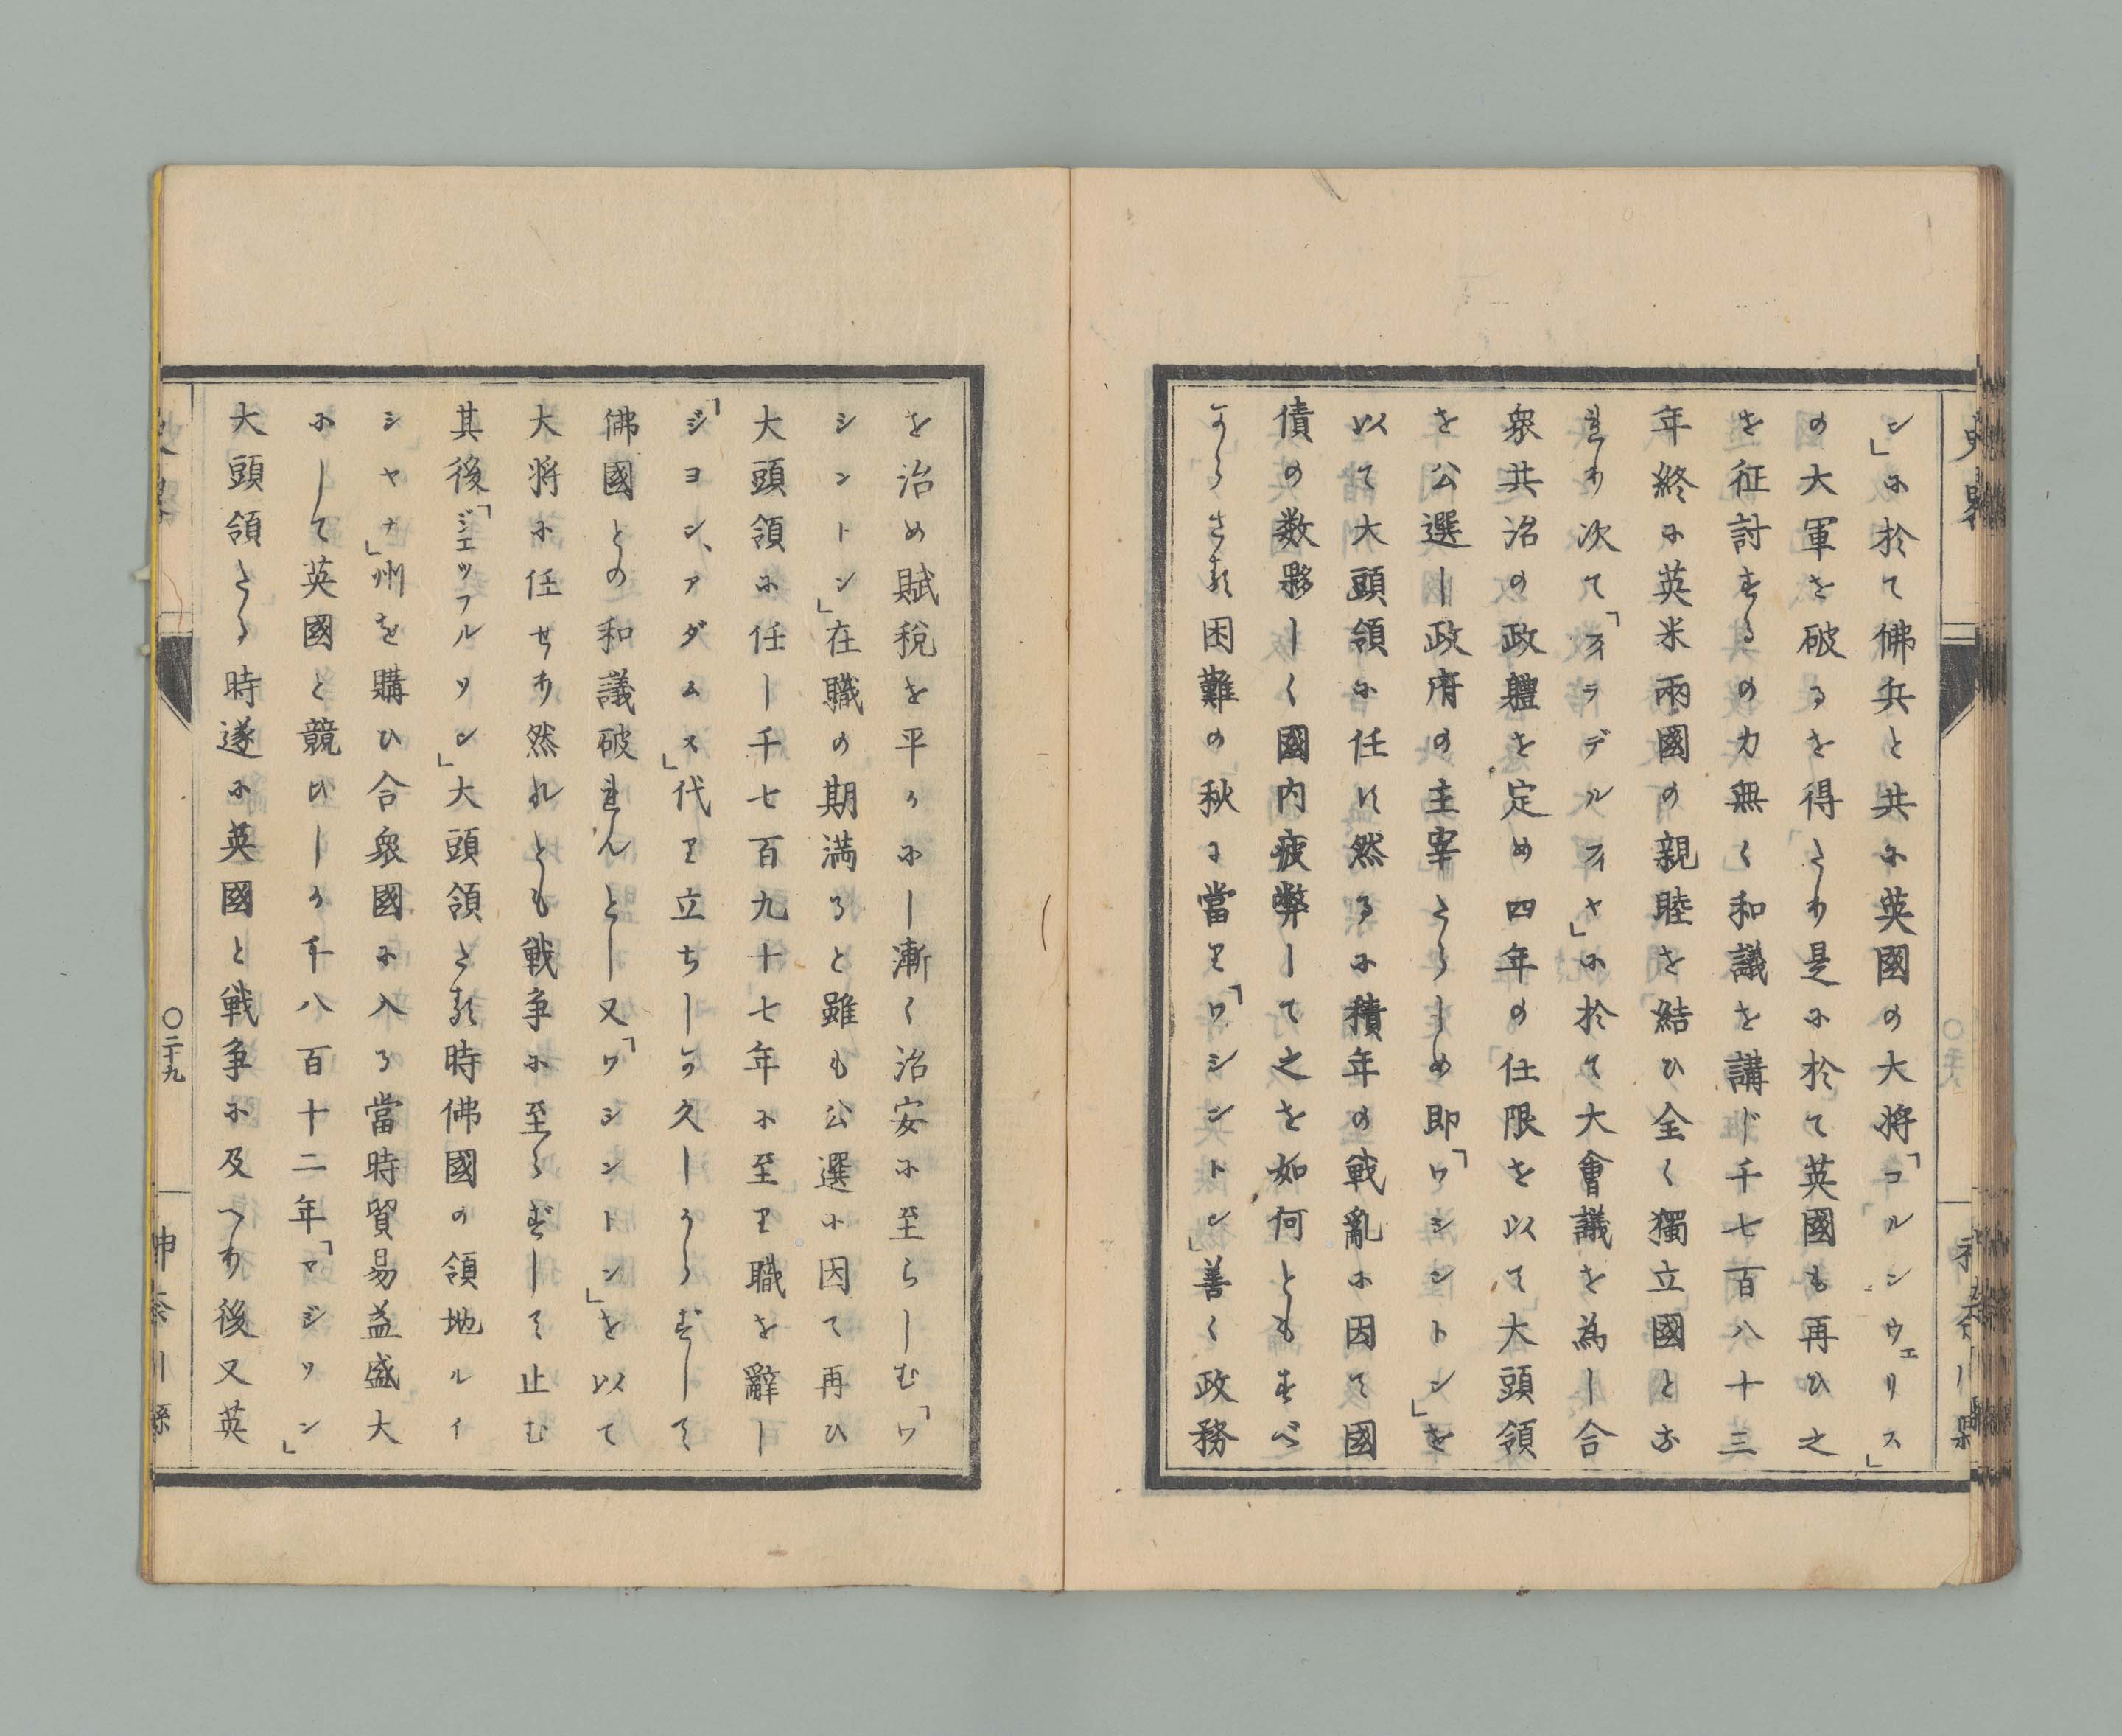 ン」に於て佛兵と共に英國の大将「コルンウェリス」
の大軍を破るを得たり是に於て英國も再ひ之
を征討するの力無く和議を講じ千七百八十三
年終に英米兩國の親睦を結ひ全く獨立國とな
れり次て「ヒィラデルフィヤ」に於て大會議を為し合
衆共治の政體を定め四年の任限を以て大頭領
を公選し政府の主宰たらしめ即「ワシントン」を
以て大頭領に任ず然るに積年の戦亂に因て國
債の数夥しく國内疲弊して之を如何ともすべ
からさる困難の秋に當り「ワシントン」善く政務
を治め賦税を平かにし漸く治安に至らしむ「ワ
シントン」在職の期満ると雖も公選に因て再ひ
大頭領に任し千七百九十七年に至り職を辭し
「ジヨン、アダムス」代り立ちしか久しからずして
佛國との和議破れんとし又「ワシントン」を以て
大将に任せり然れとも戦争に至らずして止む
其後「ジェッフルソン」大頭領たる時佛國の領地ルイ
シヤナ」州を購ひ合衆國に入る當時貿易益盛大
にして英國と競ひしか千八百十二年「マジソン」
大頭領たる時遂に英國と戦争に及へり後又英
史畧
〇二十九
神奈川縣